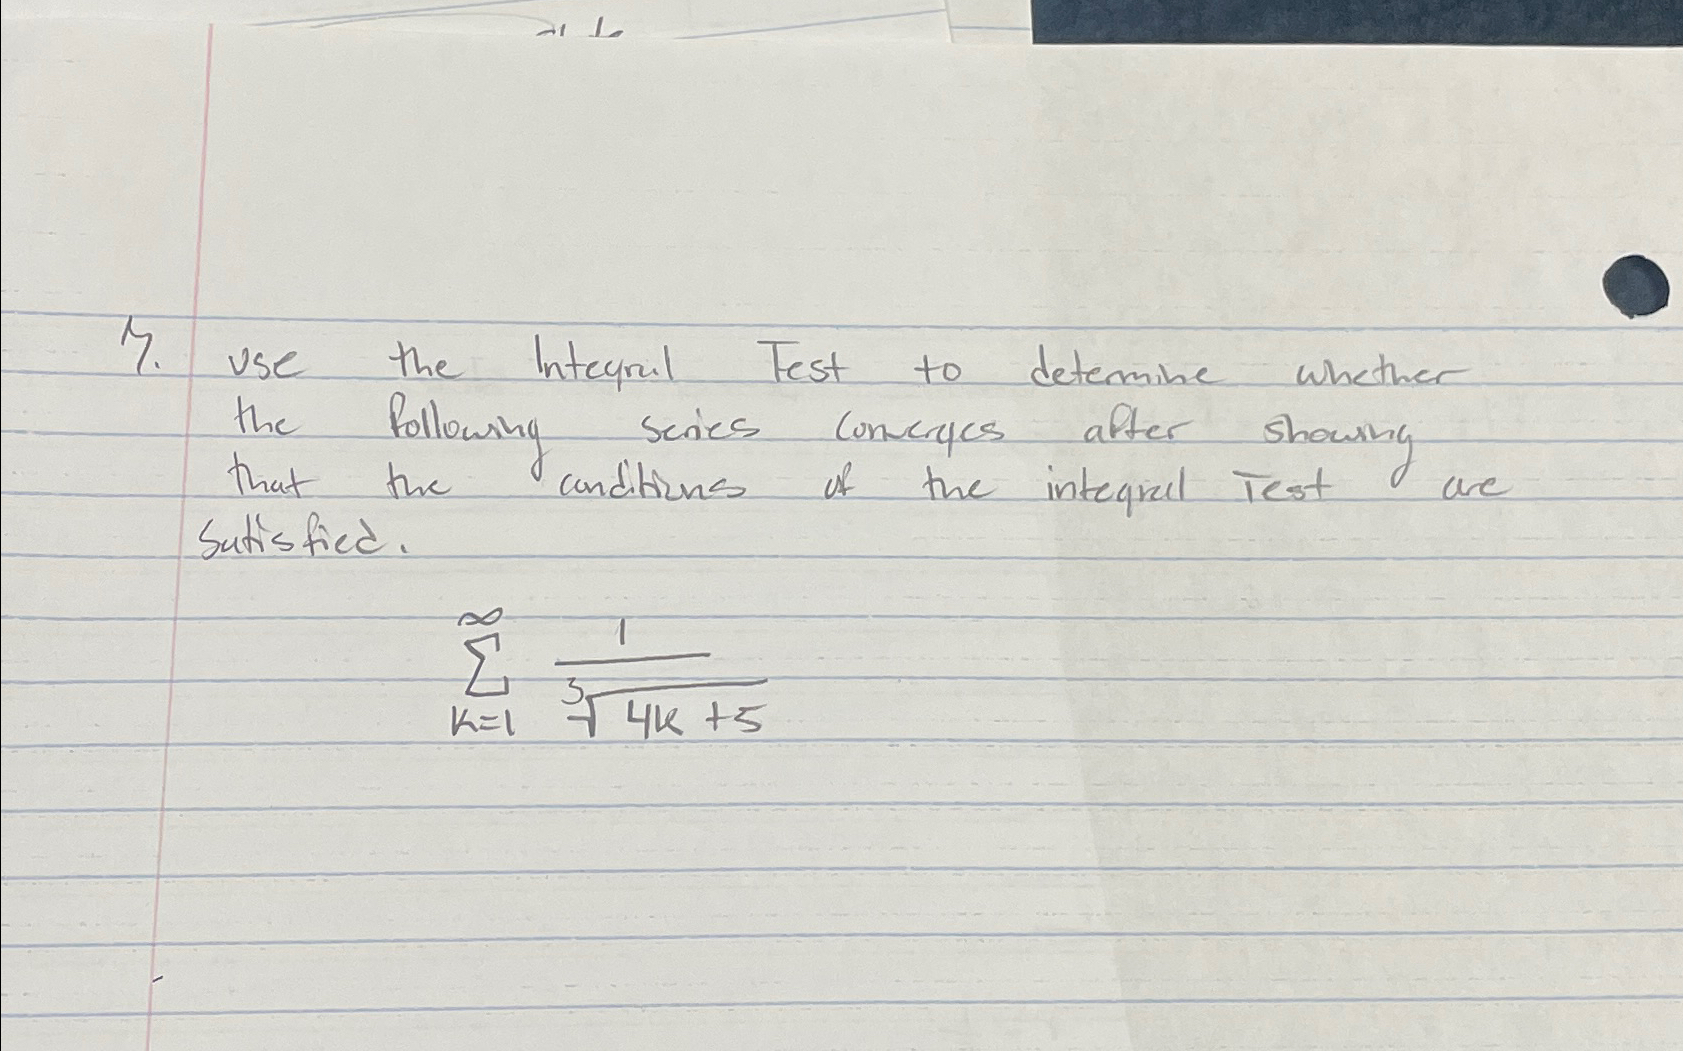 7. Use the Integral Test to determine whether
the following series converges after showing
that the conditions of the integral Test are
satisfied.
∞
∑ 1 / ∛(4k + 5)
k=1